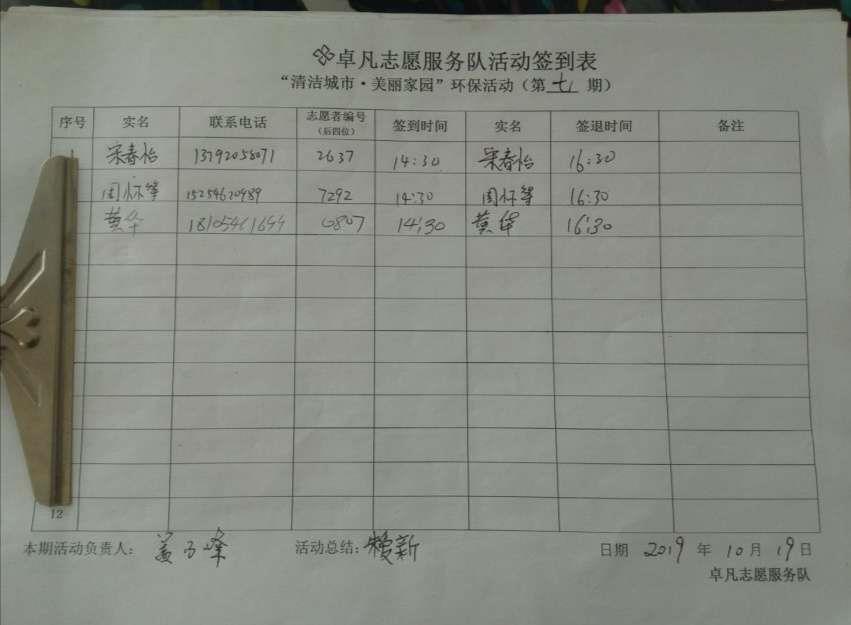 卓凡志愿服务队活动签到表
“清洁城市·美丽家园”环保活动（第 七 期）
序号 实名 联系电话 志愿者编号（后四位） 签到时间 实名 签退时间 备注
宋春怡 13792058071 2637 14:30 宋春怡 16:30
周怀等 15254620989 7292 14:30 周怀等 16:30
黄华 18105461644 0807 14:30 黄华 16:30
12
本期活动负责人： 姜子峰 活动总结： 新 日期 2019 年 10 月 19 日
卓凡志愿服务队